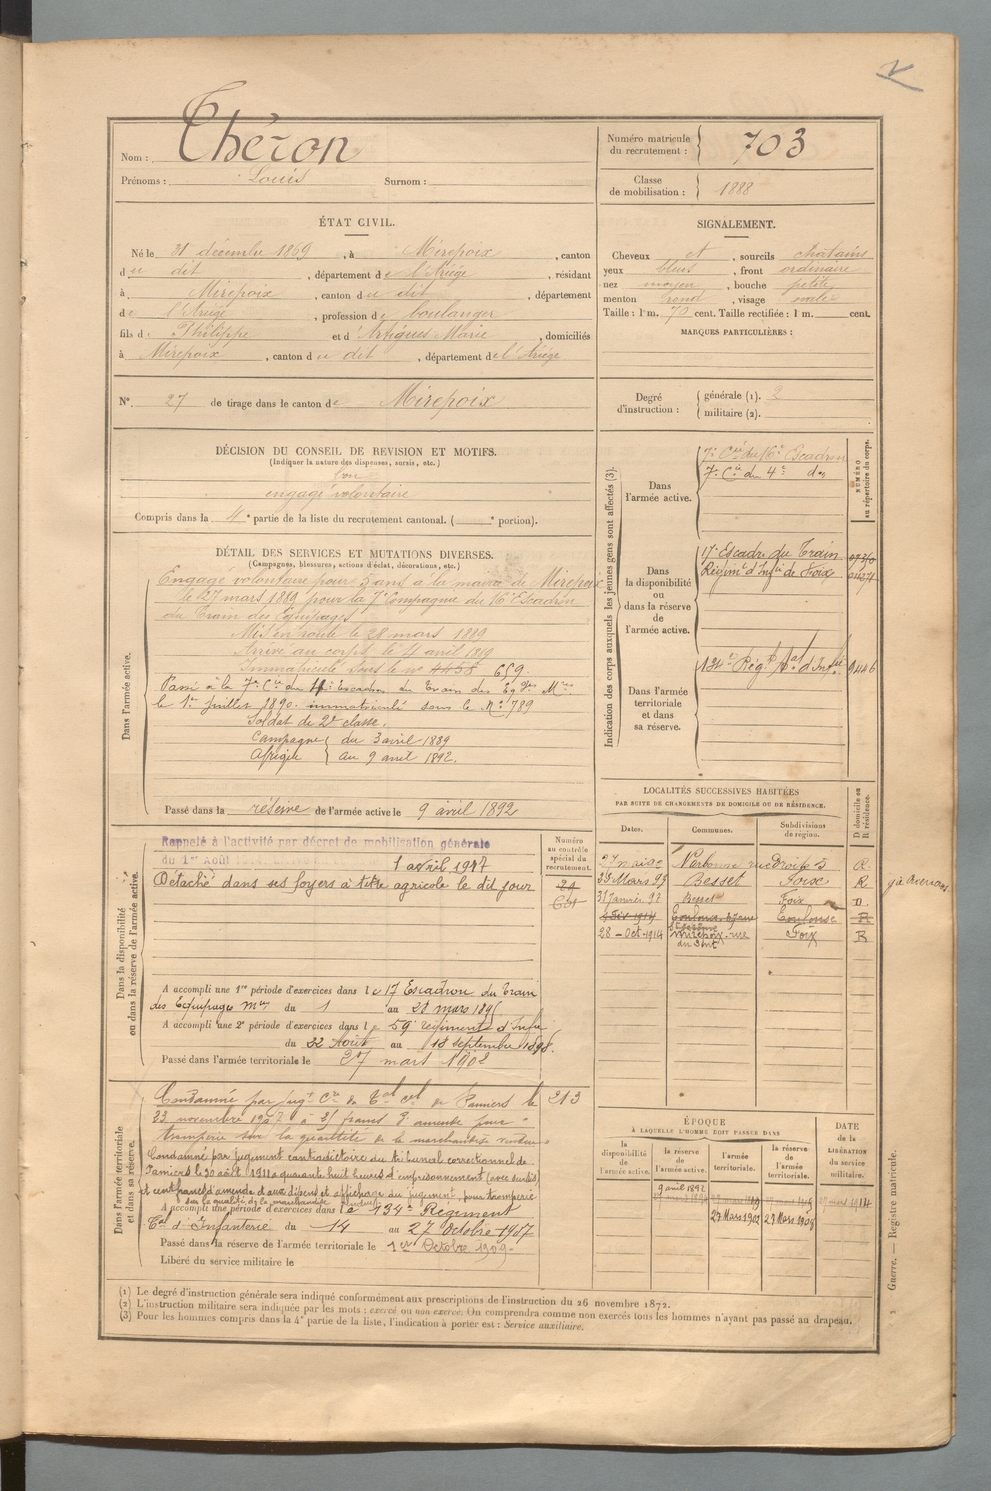 Nom : Théron
Prénoms : Louis Surnom :
Numéro matricule du recrutement : 703
Classe de mobilisation : 1888
ÉTAT CIVIL.
Né le 31 décembre 1869, à Mirepoix, canton
du dit, département de l'Ariège, résidant
à Mirepoix, canton du dit, département
de l'Ariège, profession de boulanger
fils de Philippe et d'Artigues Marie, domiciliés
à Mirepoix, canton du dit, département de l'Ariège
SIGNALEMENT.
Cheveux et, sourcils chatains
yeux bleus, front ordinaire
nez moyen, bouche petite
menton rond, visage ovale
Taille : 1 m. 70 cent. Taille rectifiée : 1 m. cent.
MARQUES PARTICULIÈRES :
N° 27 de tirage dans le canton de Mirepoix
Degré d'instruction : générale (1). 2
militaire (2).
DÉCISION DU CONSEIL DE REVISION ET MOTIFS.
(Indiquer la nature des dispenses, sursis, etc.)
bon
engagé volontaire
Compris dans la 4e partie de la liste du recrutement cantonal. ( e portion).
DÉTAIL DES SERVICES ET MUTATIONS DIVERSES.
(Campagnes, blessures, actions d'éclat, décorations, etc.)
Dans l'armée active.
Engagé volontaire pour 3 ans à la mairie de Mirepoix
le 27 mars 1889 pour la 7e Compagnie du 16e Escadron
du Train des Equipages
Mis en route le 28 mars 1889
Arrivé au corps le 4 avril 1889
Immatriculé sous le no 4458 659
Passé à la 7e Cie du Escadron du Train des Eqges Mres
le 1er Juillet 1890. immatriculé sous le No 789
Soldat de 2e classe.
Campagne du 3 avril 1889
Afrique au 9 avril 1892.
Passé dans la réserve de l'armée active le 9 avril 1892
Indication des corps auxquels les jeunes gens sont affectés (3).
NUMÉRO au répertoire du corps.
Dans l'armée active.
7e Cie du 16e Escadron
7e Cie du 4e do
Dans la disponibilité ou dans la réserve de l'armée active.
17e Escadron du Train
Régimt d'Infie de Foix
Dans l'armée territoriale et dans sa réserve.
134e Régt tal d'Infie 9446
LOCALITÉS SUCCESSIVES HABITÉES
PAR SUITE DE CHANGEMENTS DE DOMICILE OU DE RÉSIDENCE.
D domicile ou R résidence.
Dates. Communes. Subdivisions de région.
Narbonne rue Droite 3 R
Mars 95 Besset Foix R
31 Janvier 97 Besset Foix D.
Toulouse R
28 - Oct. 1914 Mirepoix, rue du Pont Foix R
Dans la disponibilité ou dans la réserve de l'armée active.
Rappelé à l'activité par décret de mobilisation générale
du 1er Août
1 avril 1917
Détaché dans ses foyers à titre agricole le dit jour
Numéro au contrôle spécial du recrutement.
A accompli une 1re période d'exercices dans le 17 Escadron du Train
des Equipages Mres du 1 au 28 mars 1895
A accompli une 2e période d'exercices dans le 59e régiment d'Infie
du 22 Août au 18 septembre 1898.
Passé dans l'armée territoriale le 27 mars 1902
Dans l'armée territoriale et dans sa réserve.
Condamné par jugt Cre du Tal cel de Pamiers le 213
23 novembre 1907 à 25 francs d'amende pour
tromperie sur la quantité de la marchandise vendue
Condamné par jugement contradictoire du tribunal correctionnel de
Pamiers le 30 août 1911 à quarante huit heures d'emprisonnement (avec sursis)
et cent francs d'amende et aux dépens et affichage du jugement, pour tromperie
sur la qualité de la marchandise vendue
A accompli une période d'exercices dans le 134e Régiment
Tal d'Infanterie du 14 au 27 octobre 1907
Passé dans la réserve de l'armée territoriale le 1er Octobre 1909
Libéré du service militaire le
ÉPOQUE
À LAQUELLE L'HOMME DOIT PASSER DANS
la disponibilité de l'armée active.
la réserve de l'armée active.
l'armée territoriale.
la réserve de l'armée territoriale.
DATE de la LIBÉRATION du service militaire.
9 avril 1892
27 Mars 1902 27 Mars 1908
(1) Le degré d'instruction générale sera indiqué conformément aux prescriptions de l'instruction du 26 novembre 1872.
(2) L'instruction militaire sera indiquée par les mots : exercé ou non exercé. On comprendra comme non exercés tous les hommes n'ayant pas passé au drapeau.
(3) Pour les hommes compris dans la 4e partie de la liste, l'indication à porter est : Service auxiliaire.
Guerre. — Registre matricule.